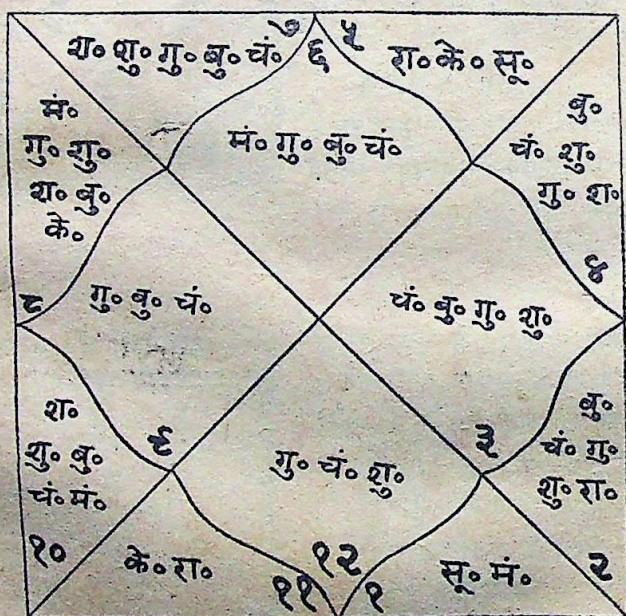 ७ ६ ५
श० शु० गु० बु० चं०
रा० के० सू०
मं०
गु० शु०
श० बु०
के०
मं० गु० बु० चं०
बु०
चं० शु०
गु० श०
८
गु० बु० चं०
चं० बु० गु० शु०
४
श०
शु० बु०
चं० मं०
९
गु० चं० शु०
३
बु०
चं० गु०
शु० रा०
१०
के० रा०
११ १२ १
सू० मं०
२